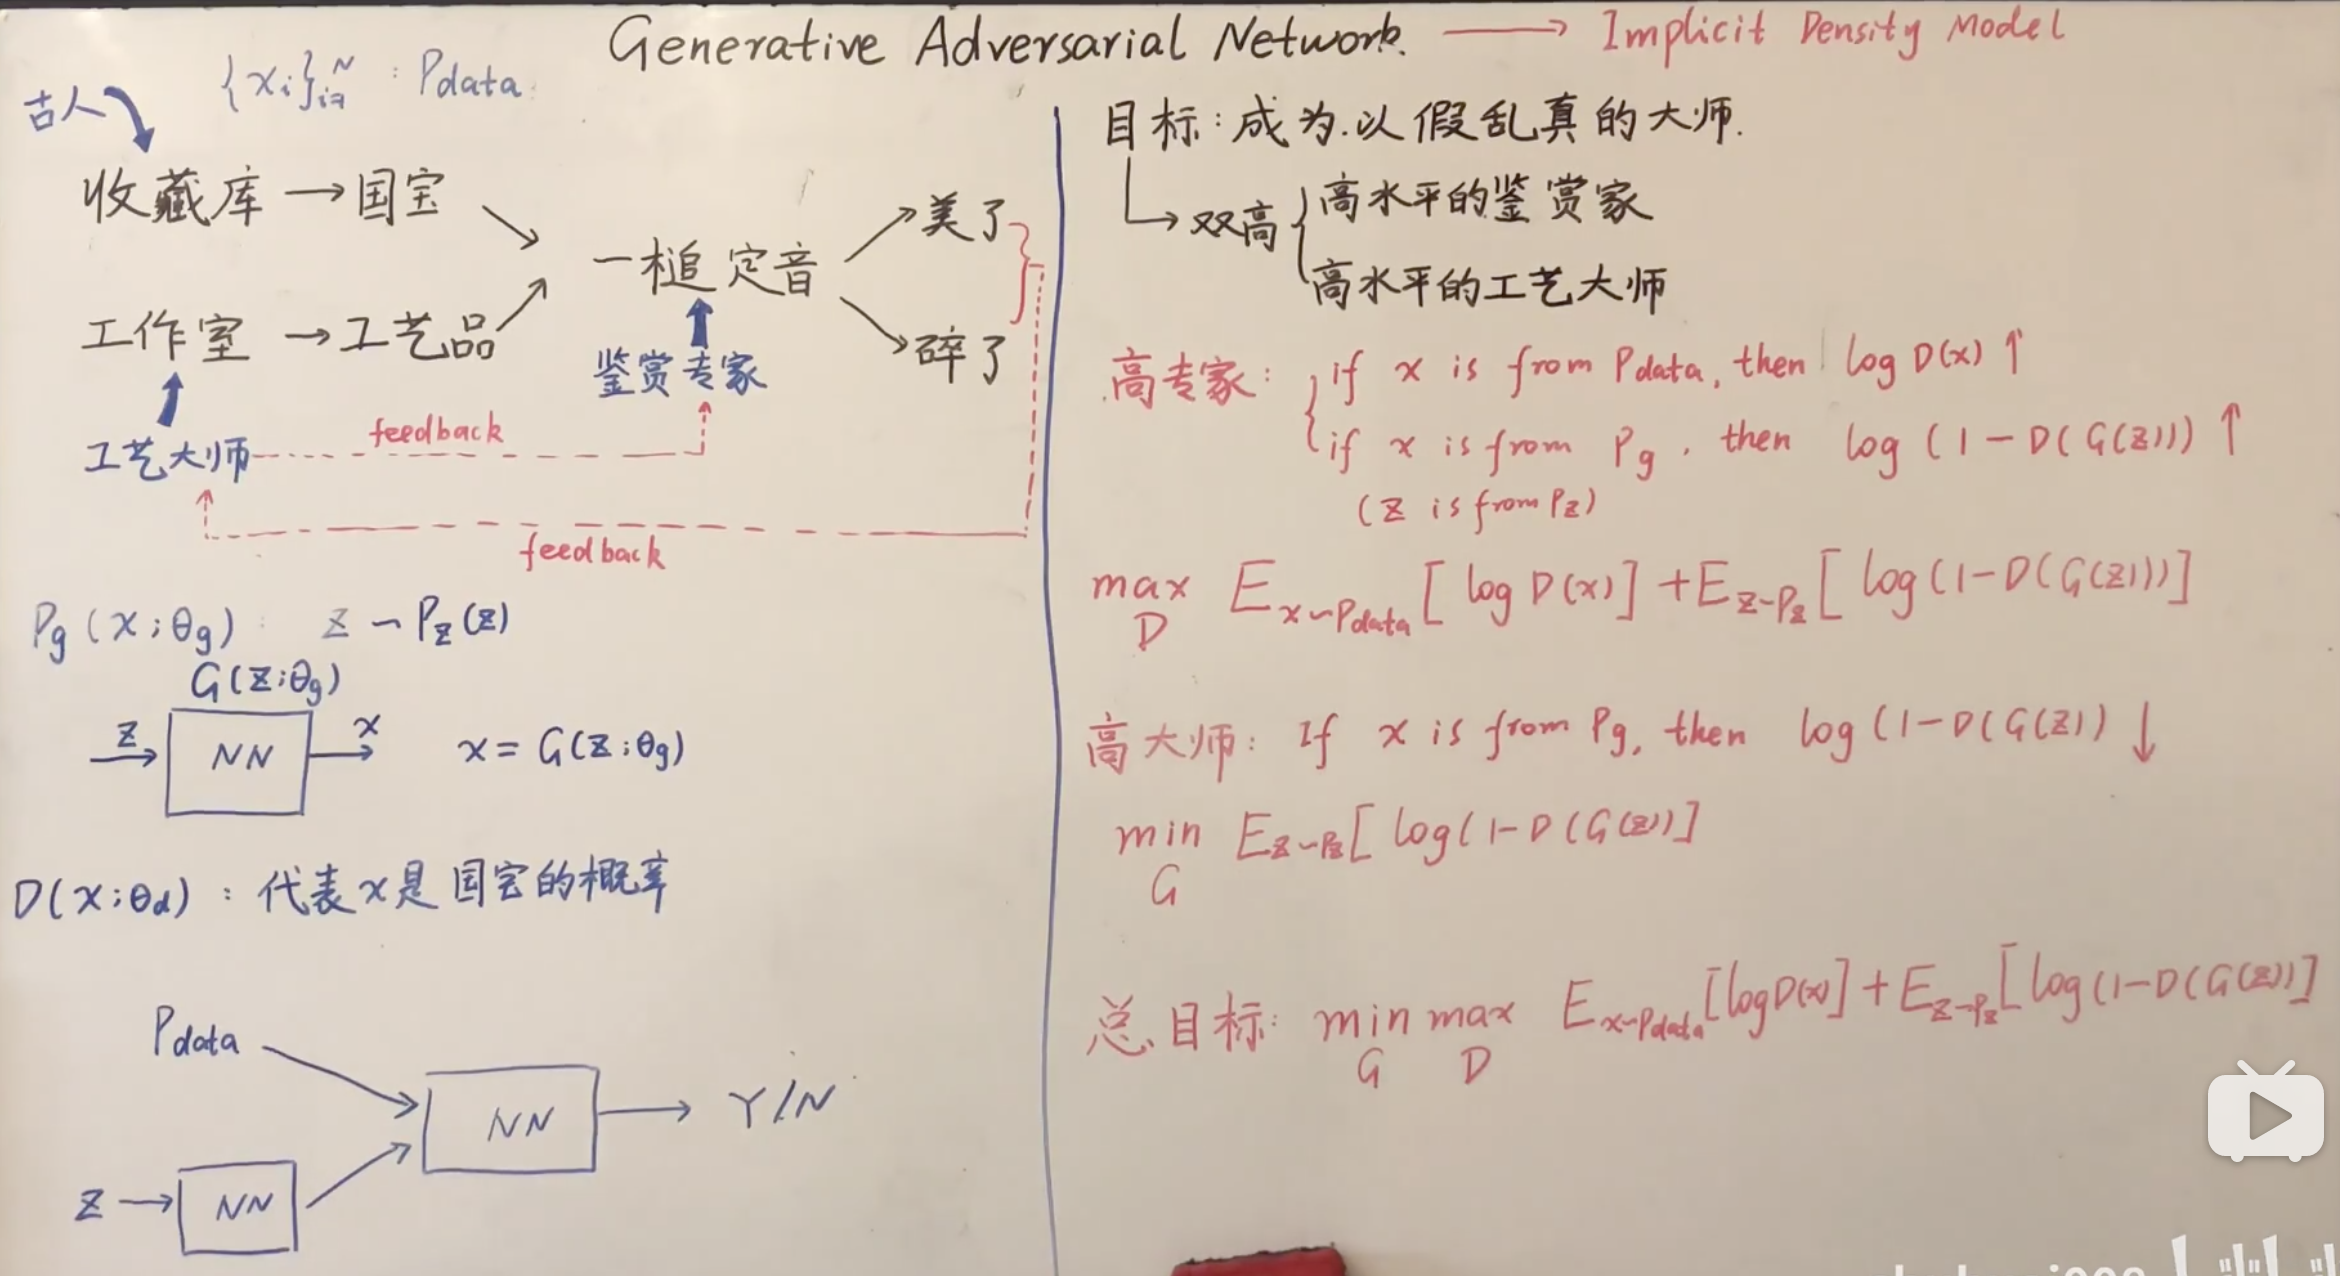 Generative Adversarial Network. → Implicit Density Model
古人
{xᵢ}ᵢ₌₁ᴺ : Pdata
收藏库 → 国宝
一槌定音
美了
碎了
工作室 → 工艺品
鉴赏专家
工艺大师
feedback
feedback
Pg(x;θg) : z ~ Pz(z)
G(z;θg)
z
NN
x
x = G(z;θg)
D(x;θd) : 代表x是国宝的概率
Pdata
NN
Y/N
z → NN
目标:成为以假乱真的大师.
双高
高水平的鉴赏家
高水平的工艺大师
高专家: if x is from Pdata, then log D(x) ↑
if x is from Pg, then log (1-D(G(z))) ↑
(z is from Pz)
max E x~Pdata [log D(x)] + E z~Pz [log(1-D(G(z)))]
D
高大师: If x is from Pg, then log (1-D(G(z)) ↓
min E z~Pz [log(1-D(G(z))]
G
总目标: min max E x~Pdata [log D(x)] + E z~Pz [log(1-D(G(z))]
G D